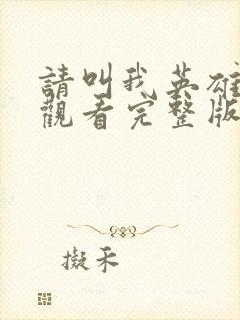 請叫我英雄
觀看完整版
擬禾